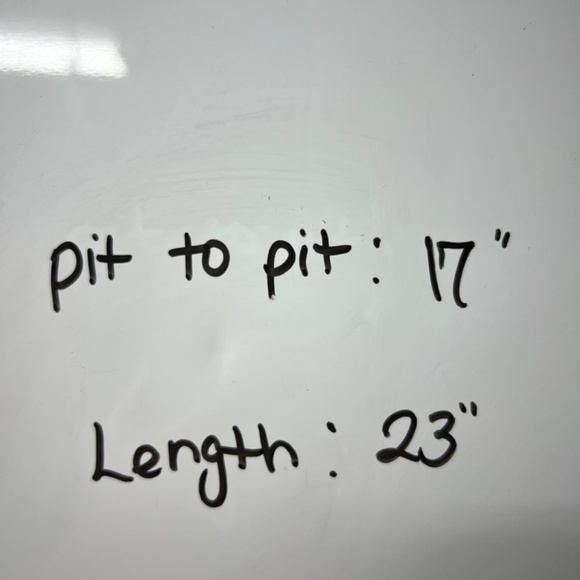 pit to pit: 17"
Length: 23"